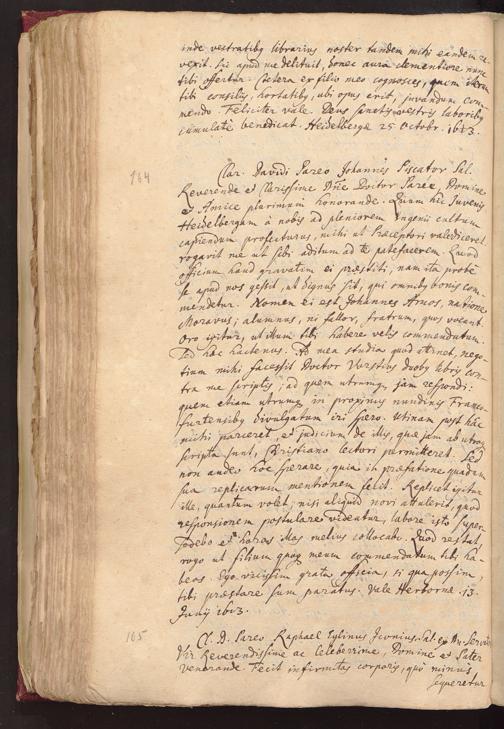 inde vestratibq librarius noster tandem mihi eandem ex-
vexit. Sic apud me delituit, donec aura clementiore nunc
tibi offertur. Cetera ex filio meo cognosces, quem iterum
tibi consiliis, hortatibq, ubi opus erit, juvandum com-
mendo. Feliciter vale. Deus sanctis vestris laboribq
cumulatè benedicat. Heidelbergæ 25 Octobr. 1613.
164
Clar. Davidi Pareo Johannes Piscator Sal.
Reverende et Clarissime Dñe Doctor Paree, Domine
et Amice plurimùm honorande. Quum hic Juvenis
Heidelbergam à nobis ad pleniorem Ingenii cultum
capiendum profecturus, mihi ut Præceptori valediceret,
rogavit me ut sibi aditum ad te patefacerem. Quod
officium haud gravatim ei præstiti, nam ita probè
se apud nos gessit, ut dignus sit, qui omnibq bonis com-
mendetur. Nomen ei est Johannes Amos, natione
Moravus; alumnus, ni fallor, fratrum, quos vocant.
Oro igitur, ut illum tibi habere velis commendatum.
Sed hæc hactenus. Ad mea studia quod attinet, nego-
tium mihi facessit Doctor Vorstius duobq libris con-
tra me scriptis; ad quem utrumq jam respondi:
quem etiam utrumq in proximis nundinis Franco-
furtensibq divulgatum iri spero. Utinam post hac
mihi parceret, et judicium de illis, quæ jam ab utroq
scripta sunt, Christiano lectori permitteret. Sed
non audeo hoc sperare, quia in præfatione quadam
sua replicarum mentionem fecit. Replicet igitur
ille, quantum volet; nisi aliquid novi attulerit, quod
responsionem postulare videatur, labore isto super-
sedebo et horas illas melius collocabo. Quod restat,
rogo ut filium quoq meum commendatum tibi ha-
beas. Ego vicissim grata officia, si qua possim,
tibi præstare sum paratus. Vale Herbornæ 13.
Junij 1613.
165
Cl. D. Pareo Raphael Eglinus Iconius Sal.
Vir Reverendissime ac Celeberrime, Domine et Pater
venerande. Fecit infirmitas corporis, quò minus
sequeretur